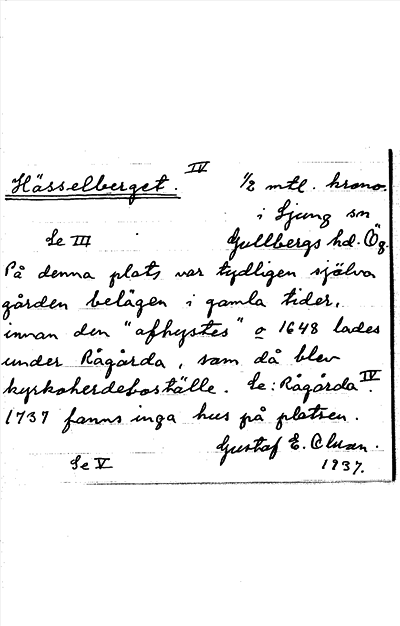 Hässelberget. IV ½ mtl. krono.
i Ljung sn
Se III Gullbergs hd. Ög.
På denna plats var tydligen själva
gården belägen i gamla tider,
innan den "afhystes" o 1648 lades
under Rågårda, som då blev
kyrkoherdeboställe. Se: Rågårda IV.
1737 fanns inga hus på platsen.
Gustaf E.
Se V 1937.